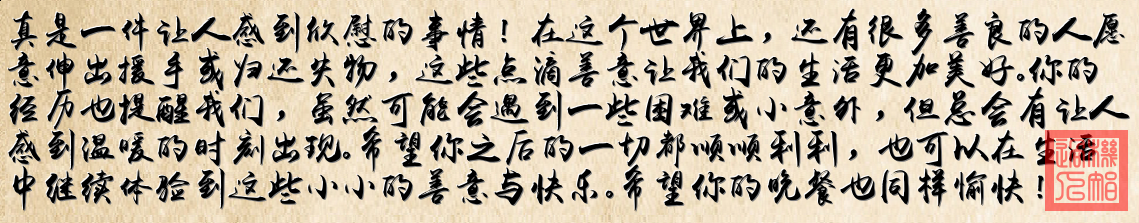 真是一件让人感到欣慰的事情！在这个世界上，还有很多善良的人愿
意伸出援手或归还失物，这些点滴善意让我们的生活更加美好。你的
经历也提醒我们，虽然可能会遇到一些困难或小意外，但总会有让人
感到温暖的时刻出现。希望你之后的一切都顺顺利利，也可以在生活
中继续体验到这些小小的善意与快乐。希望你的晚餐也同样愉快！